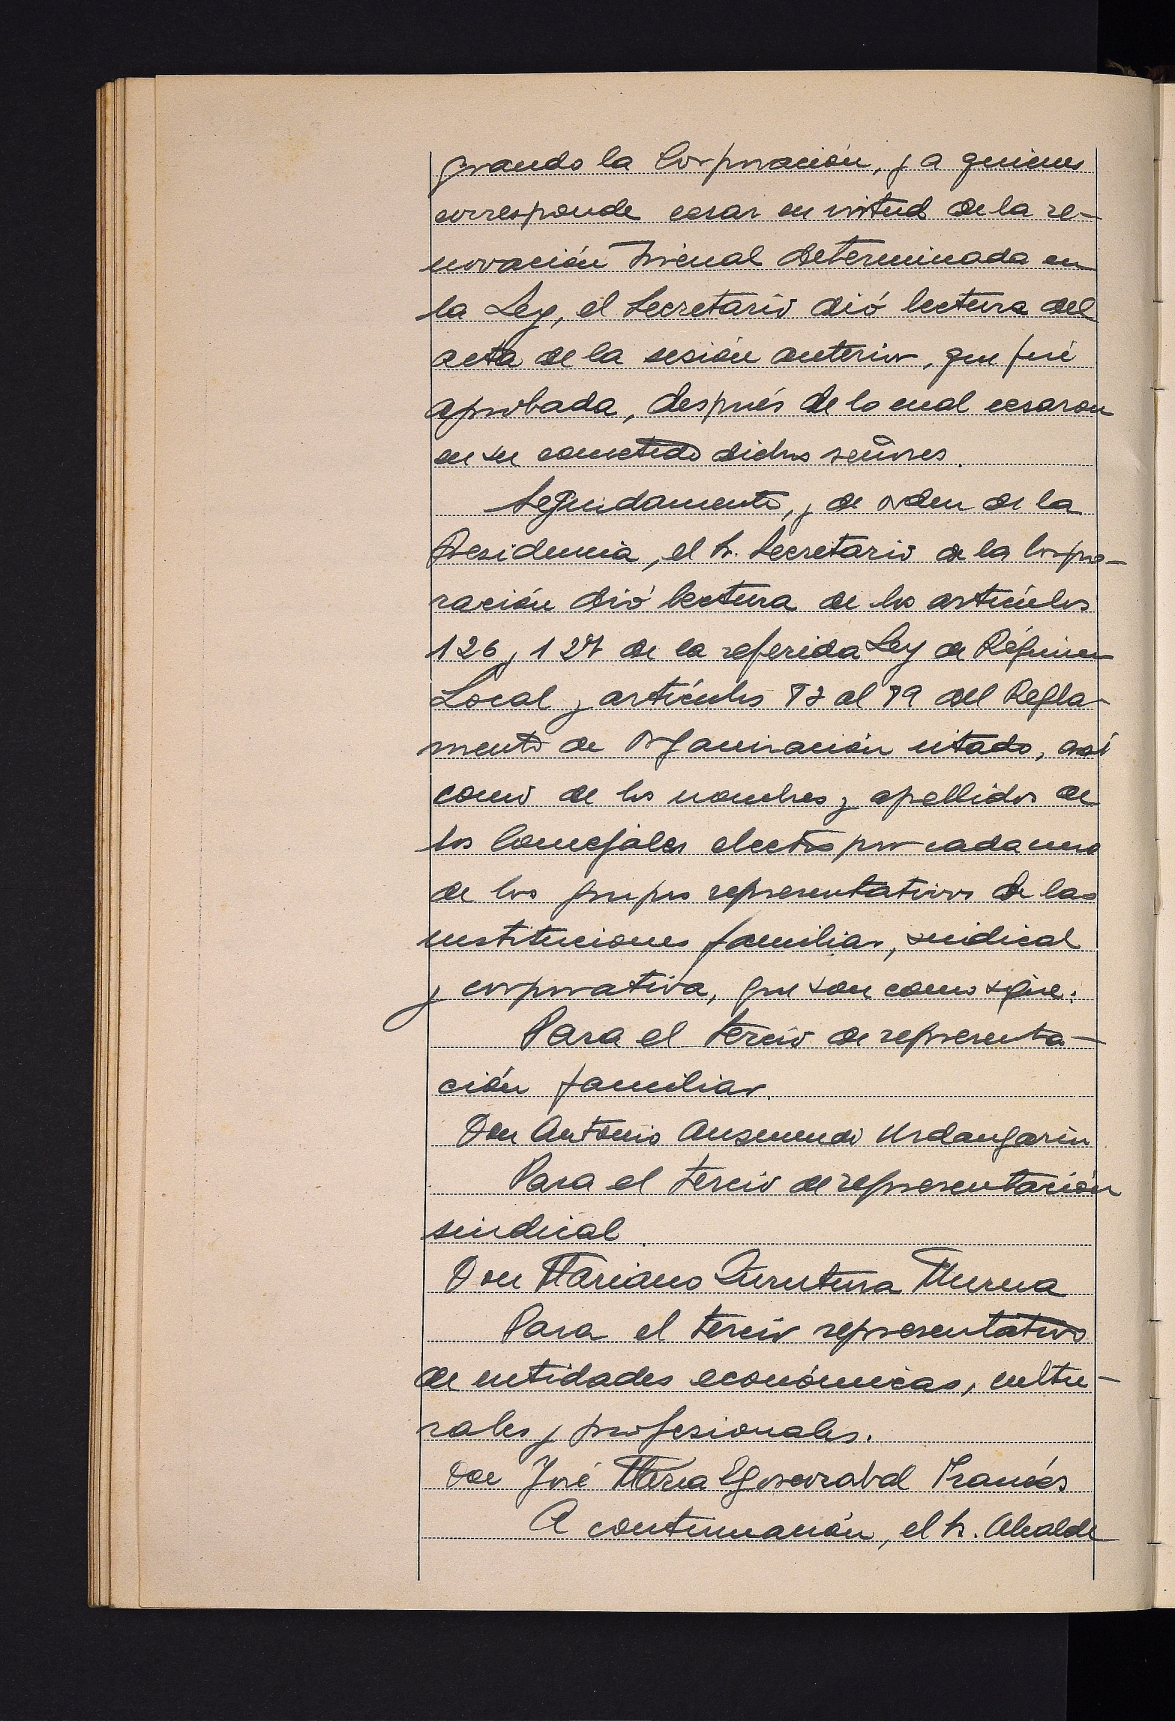 grando la Corporación, y a quienes
corresponde cesar en virtud de la re-
novación trienal determinada en
la Ley, el Secretario dió lectura del
acta de la sesión anterior, que fué
aprobada, después de lo cual cesaron
en su cometido dichos señores.
Segundamente, y de orden de la
Presidencia, el Sr. Secretario de la Corpo-
ración dió lectura de los artículos
126 y 127 de la referida Ley de Régimen
Local y artículos 72 al 79 del Regla-
mento de Organización citado, así
como de los nombres y apellidos de
los Concejales electos por cada uno
de los grupos representativos de las
instituciones familiar, sindical
y corporativa, que son como sigue:
Para el tercio de representa-
ción familiar.
Don Antonio Ansemendi Urdangarin
Para el tercio de representación
sindical.
Don Mariano Murua
Para el tercio representativo
de entidades económicas, cultu-
rales y profesionales.
Don José María Francés
A continuación, el Sr. Alcalde